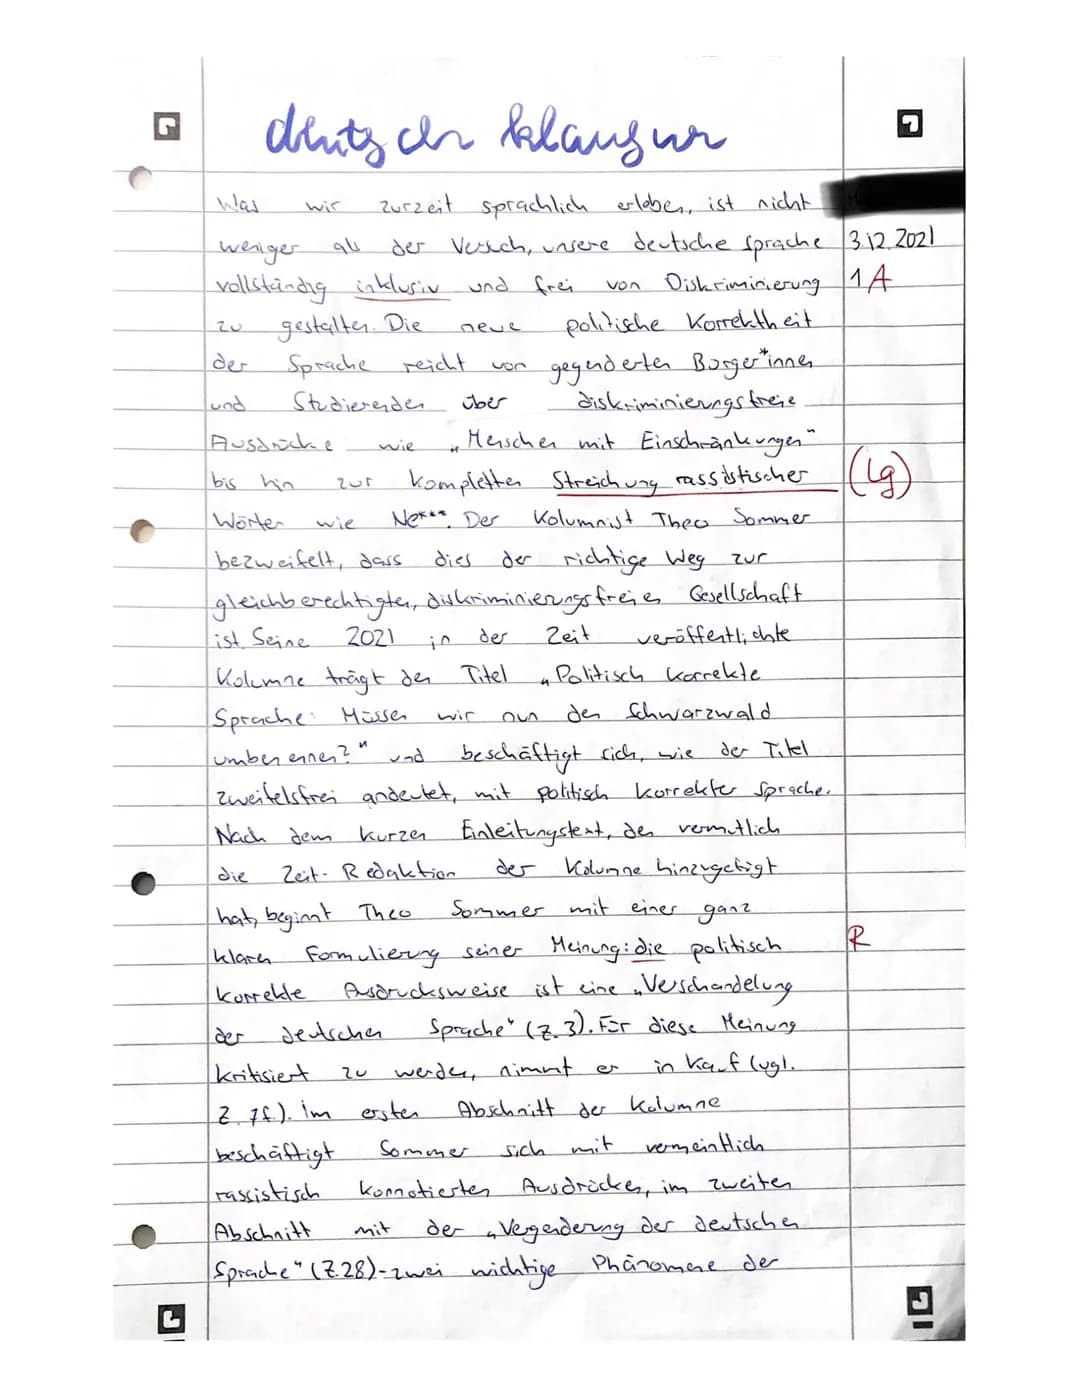 deutsch klausur
Was wir zurzeit sprachlich erleben, ist nicht
weniger als der Versuch, unsere deutsche Sprache 3.12.2021
vollständig inklusiv und frei von Diskriminierung 1 A
zu gestalten. Die neue politische Korrektheit
der Sprache reicht von gegenderten Bürger*innen
und Studierenden über diskriminierungsfreie
Ausdrücke wie „Menschen mit Einschränkungen"
bis hin zur kompletten Streichung rassistischer (Lg)
Wörter wie Ne***. Der Kolumnist Theo Sommer
bezweifelt, dass dies der richtige Weg zur
gleichberechtigten, diskriminierungsfreien Gesellschaft
ist. Seine 2021 in der Zeit veröffentlichte
Kolumne trägt den Titel „Politisch korrekte
Sprache: Müssen wir nun den Schwarzwald
umbenennen?" und beschäftigt sich, wie der Titel
zweifelsfrei andeutet, mit politisch korrekter Sprache.
Nach dem kurzen Einleitungstext, den vermutlich
die Zeit-Redaktion der Kolumne hinzugefügt
hat, beginnt Theo Sommer mit einer ganz
klaren Formulierung seiner Meinung: die politisch R
korrekte Ausdrucksweise ist eine „Verschandelung
der deutschen Sprache" (Z. 3). Für diese Meinung
kritisiert zu werden, nimmt er in Kauf (vgl.
Z. 7f.). Im ersten Abschnitt der Kolumne
beschäftigt Sommer sich mit vermeintlich
rassistisch konnotierten Ausdrücken, im zweiten
Abschnitt mit der „Vergenderung der deutschen
Sprache" (Z.28)-zwei wichtige Phänomene der